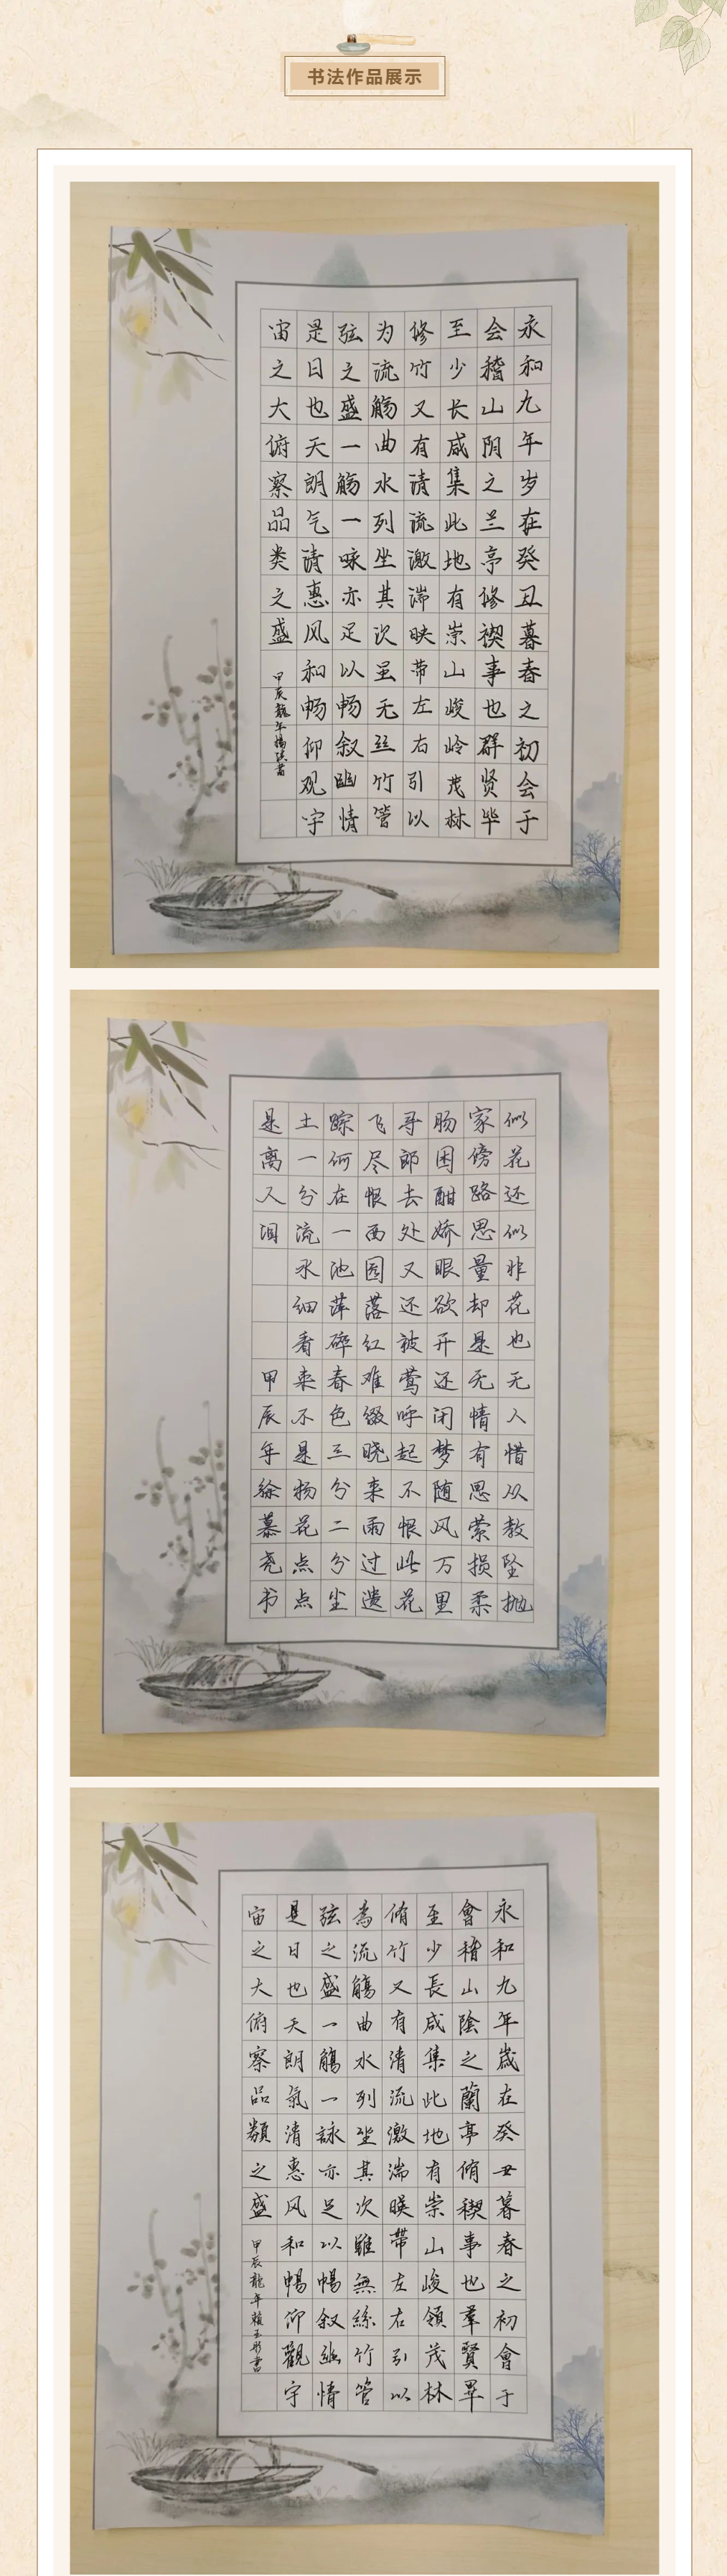 书法作品展示
永和九年岁在癸丑暮春之初会于
会稽山阴之兰亭修禊事也群贤毕
至少长咸集此地有崇山峻岭茂林
修竹又有清流激湍映带左右引以
为流觞曲水列坐其次虽无丝竹管
弦之盛一觞一咏亦足以畅叙幽情
是日也天朗气清惠风和畅仰观宇
宙之大俯察品类之盛
甲辰龍年
似花还似非花也无人惜从教坠抛
家傍路思量却是无情有思萦损柔
肠困酣娇眼欲开还闭梦随风万里
寻郎去处又还被莺呼起不恨此花
飞尽恨西园落红难缀晓来雨过遗
踪何在一池萍碎春色三分二分尘
土一分流水细看来不是杨花点点
是离人泪 甲辰年徐慕尧书
永和九年歲在癸丑暮春之初會于
會稽山陰之蘭亭脩稧事也羣賢畢
至少長咸集此地有崇山峻領茂林
脩竹又有清流激湍暎帶左右引以
為流觴曲水列坐其次雖無絲竹管
弦之盛一觴一詠亦足以暢叙幽情
是日也天朗氣清惠风和暢仰觀宇
宙之大俯察品類之盛
甲辰龍年